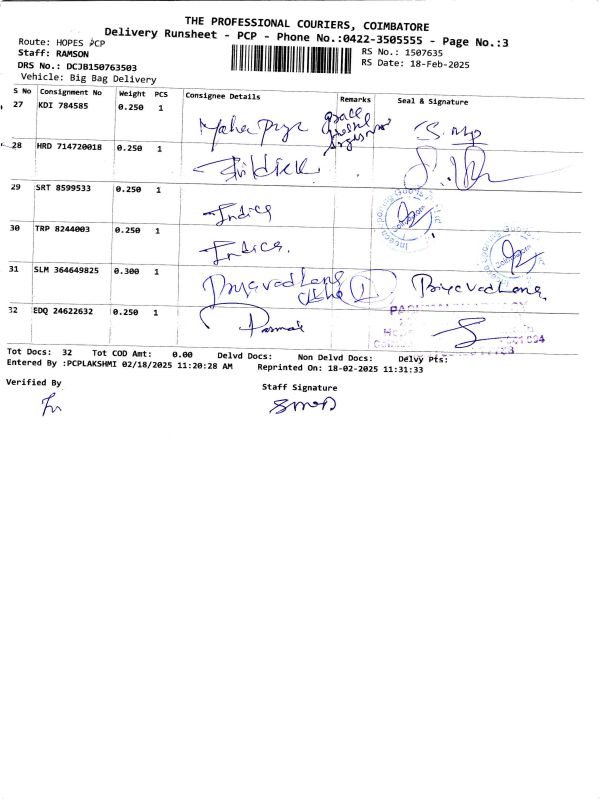 THE PROFESSIONAL COURIERS, COIMBATORE
Delivery Runsheet - PCP - Phone No.:0422-3505555 - Page No.:3
Route: HOPES PCP
Staff: RAMSON
DRS No.: DCJB150763503
Vehicle: Big Bag Delivery
RS No.: 1507635
RS Date: 18-Feb-2025
S No Consignment No Weight PCS Consignee Details Remarks Seal & Signature
27 KDI 784585 0.250 1
28 HRD 714720018 0.250 1
29 SRT 8599533 0.250 1 Indica
30 TRP 8244003 0.250 1 Indica.
31 SLM 364649825 0.300 1 Priyavadhana
32 EDQ 24622632 0.250 1
Tot Docs: 32 Tot COD Amt: 0.00 Delvd Docs: Non Delvd Docs: Delvy Pts:
Entered By :PCPLAKSHMI 02/18/2025 11:20:28 AM Reprinted On: 18-02-2025 11:31:33
Verified By
Staff Signature